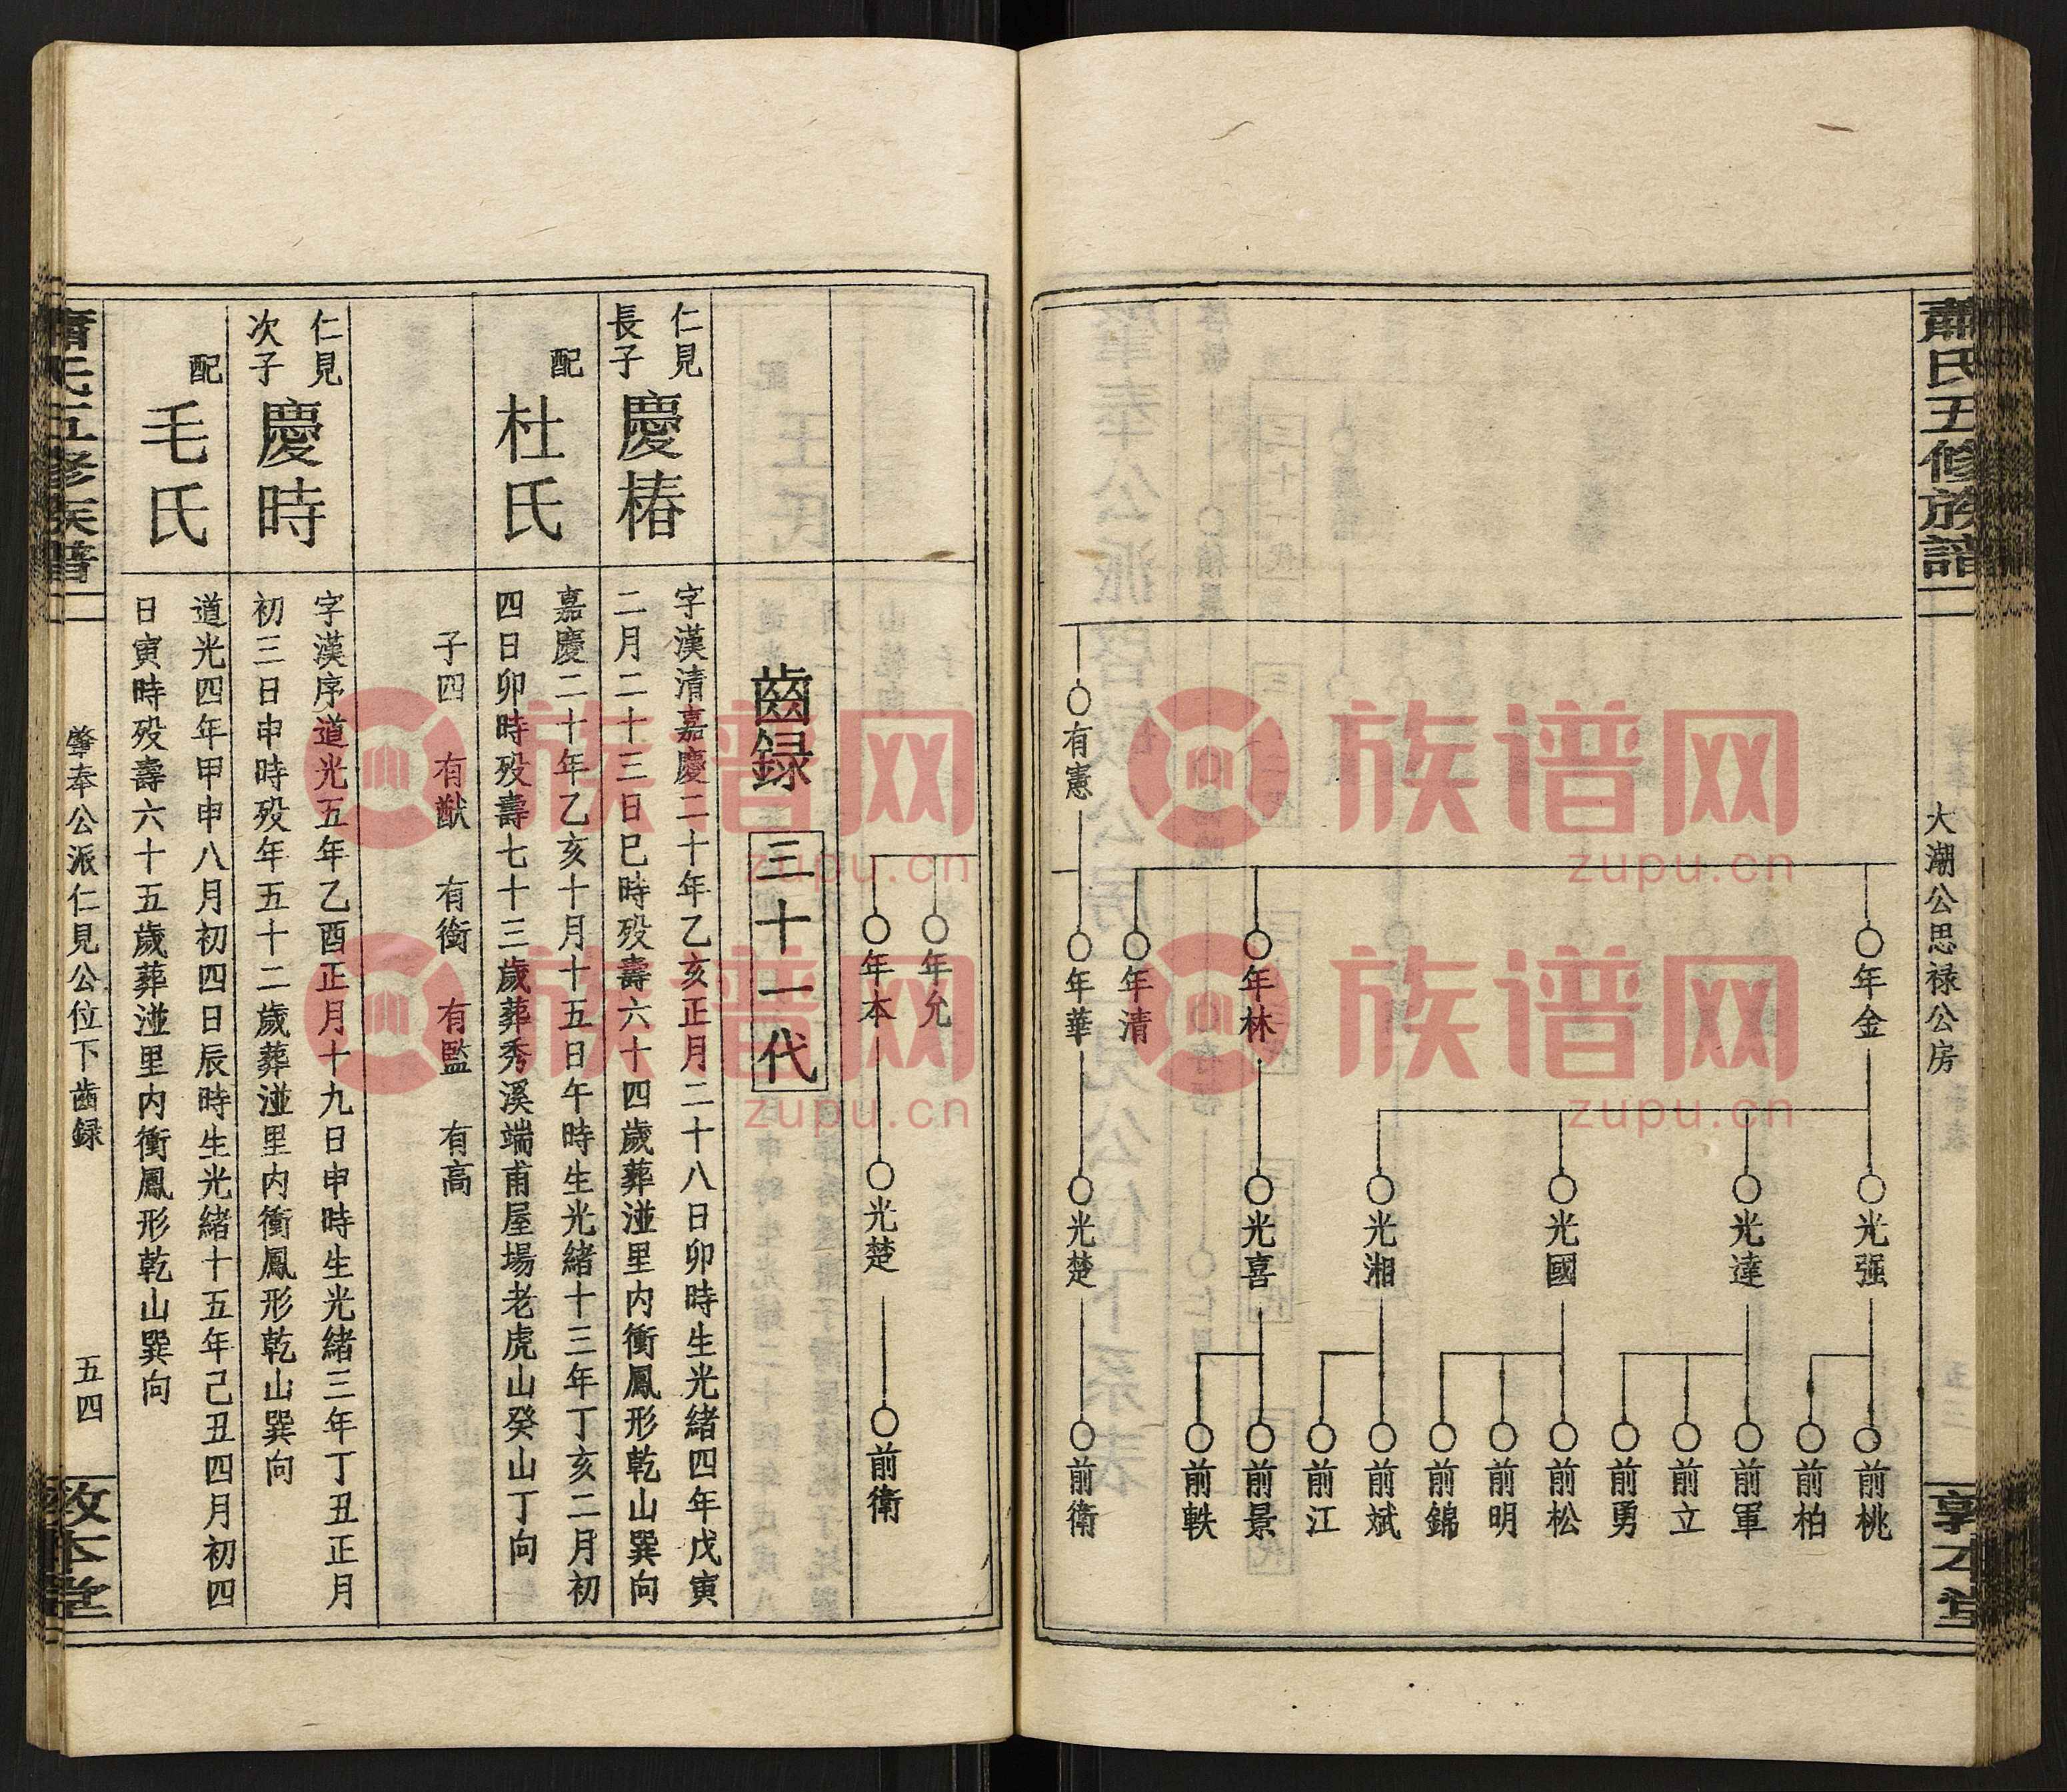 蕭氏五修族譜
大潮公思禄公房
敦本堂
有憲
年金
年林
年清
年華
光强
光達
光國
光湘
光喜
光楚
前桃
前柏
前軍
前立
前勇
前松
前明
前錦
前斌
前江
前景
前軼
前衛
年允
年本
光楚
前衛
齒録 三十一代
仁見
長子
慶椿
字漢清嘉慶二十年乙亥正月二十八日卯時生光緒四年戊寅
二月二十三日巳時殁壽六十四歲葬湴里内衝鳳形乾山巽向
配
杜氏
嘉慶二十年乙亥十月十五日午時生光緒十三年丁亥二月初
四日卯時殁壽七十三歲葬秀溪端甫屋場老虎山癸山丁向
子四 有猷 有衡 有監 有高
仁見
次子
慶時
字漢序道光五年乙酉正月十九日申時生光緒三年丁丑正月
初三日申時殁年五十二歲葬湴里内衝鳳形乾山巽向
配
毛氏
道光四年甲申八月初四日辰時生光緒十五年己丑四月初四
日寅時殁壽六十五歲葬湴里内衝鳳形乾山巽向
蕭氏五修族譜
肇奉公派仁見公位下齒録
五四
敦本堂
族谱网
zupu.cn
族谱网
zupu.cn
族谱网
zupu.cn
族谱网
zupu.cn